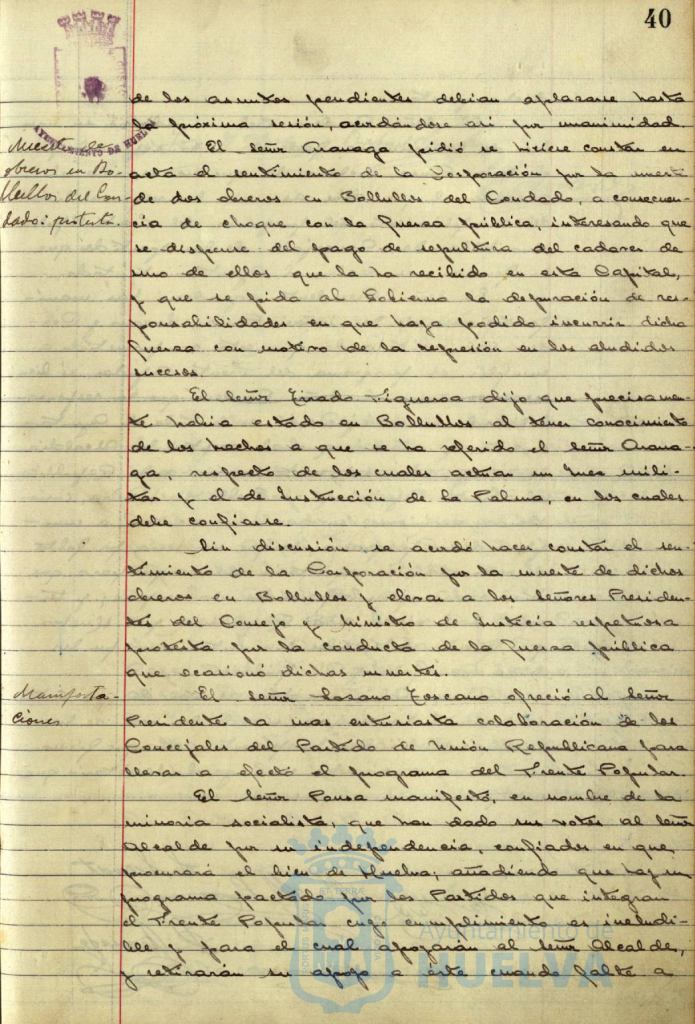 40
AYUNTAMIENTO DE HUELVA
de los asuntos pendientes debian aplazarse hasta
la próxima sesión, acordándose asi por unanimidad.
Muerte de
obreros en Bo-
llullos del Con-
dado: protesta.
El Señor Aranaga pidió se hiciese constar en
acta el sentimiento de la Corporación por la muerte
de dos obreros en Bollullos del Condado, a consecuen-
cia de choque con la fuerza pública, interesando que
se dispense del pago de sepultura del cadaver de
uno de ellos que la ha recibido en esta Capital,
y que se pida al Gobierno la depuración de res-
ponsabilidades en que haya podido incurrir dicha
fuerza con motivo de la represión en los aludidos
sucesos.
El Señor Tirado Figueroa dijo que precisamen-
te habia estado en Bollullos al tener conocimiento
de los hechos a que se ha referido el Señor Arana-
ga, respecto de los cuales actúan un Juez mili-
tar y el de Instrucción de La Palma, en los cuales
debe confiarse.
Sin discusión se acordó hacer constar el sen-
timiento de la Corporación por la muerte de dichos
obreros en Bollullos y elevar a los Señores Presiden-
tes del Consejo y Ministro de Justicia respetuosa
protesta por la conducta de la fuerza pública
que ocasionó dichas muertes.
Manifesta-
ciones
El Señor Lozano Toscano ofreció al Señor
Presidente la mas entusiasta colaboración de los
Concejales del Partido de Unión Republicana para
llevar a efecto el programa del Frente Popular.
El Señor Ponsa manifestó, en nombre de la
minoria socialista, que han dado sus votos al Señor
Alcalde por su independencia, confiados en que
procurará el bien de Huelva; añadiendo que hay un
programa pactado por los Partidos que integran
el Frente Popular cuyo cumplimiento es ineludi-
ble y para el cual apoyarán al Señor Alcalde,
y retirarán su apoyo a éste cuando falte a
Ayuntamiento de
HUELVA